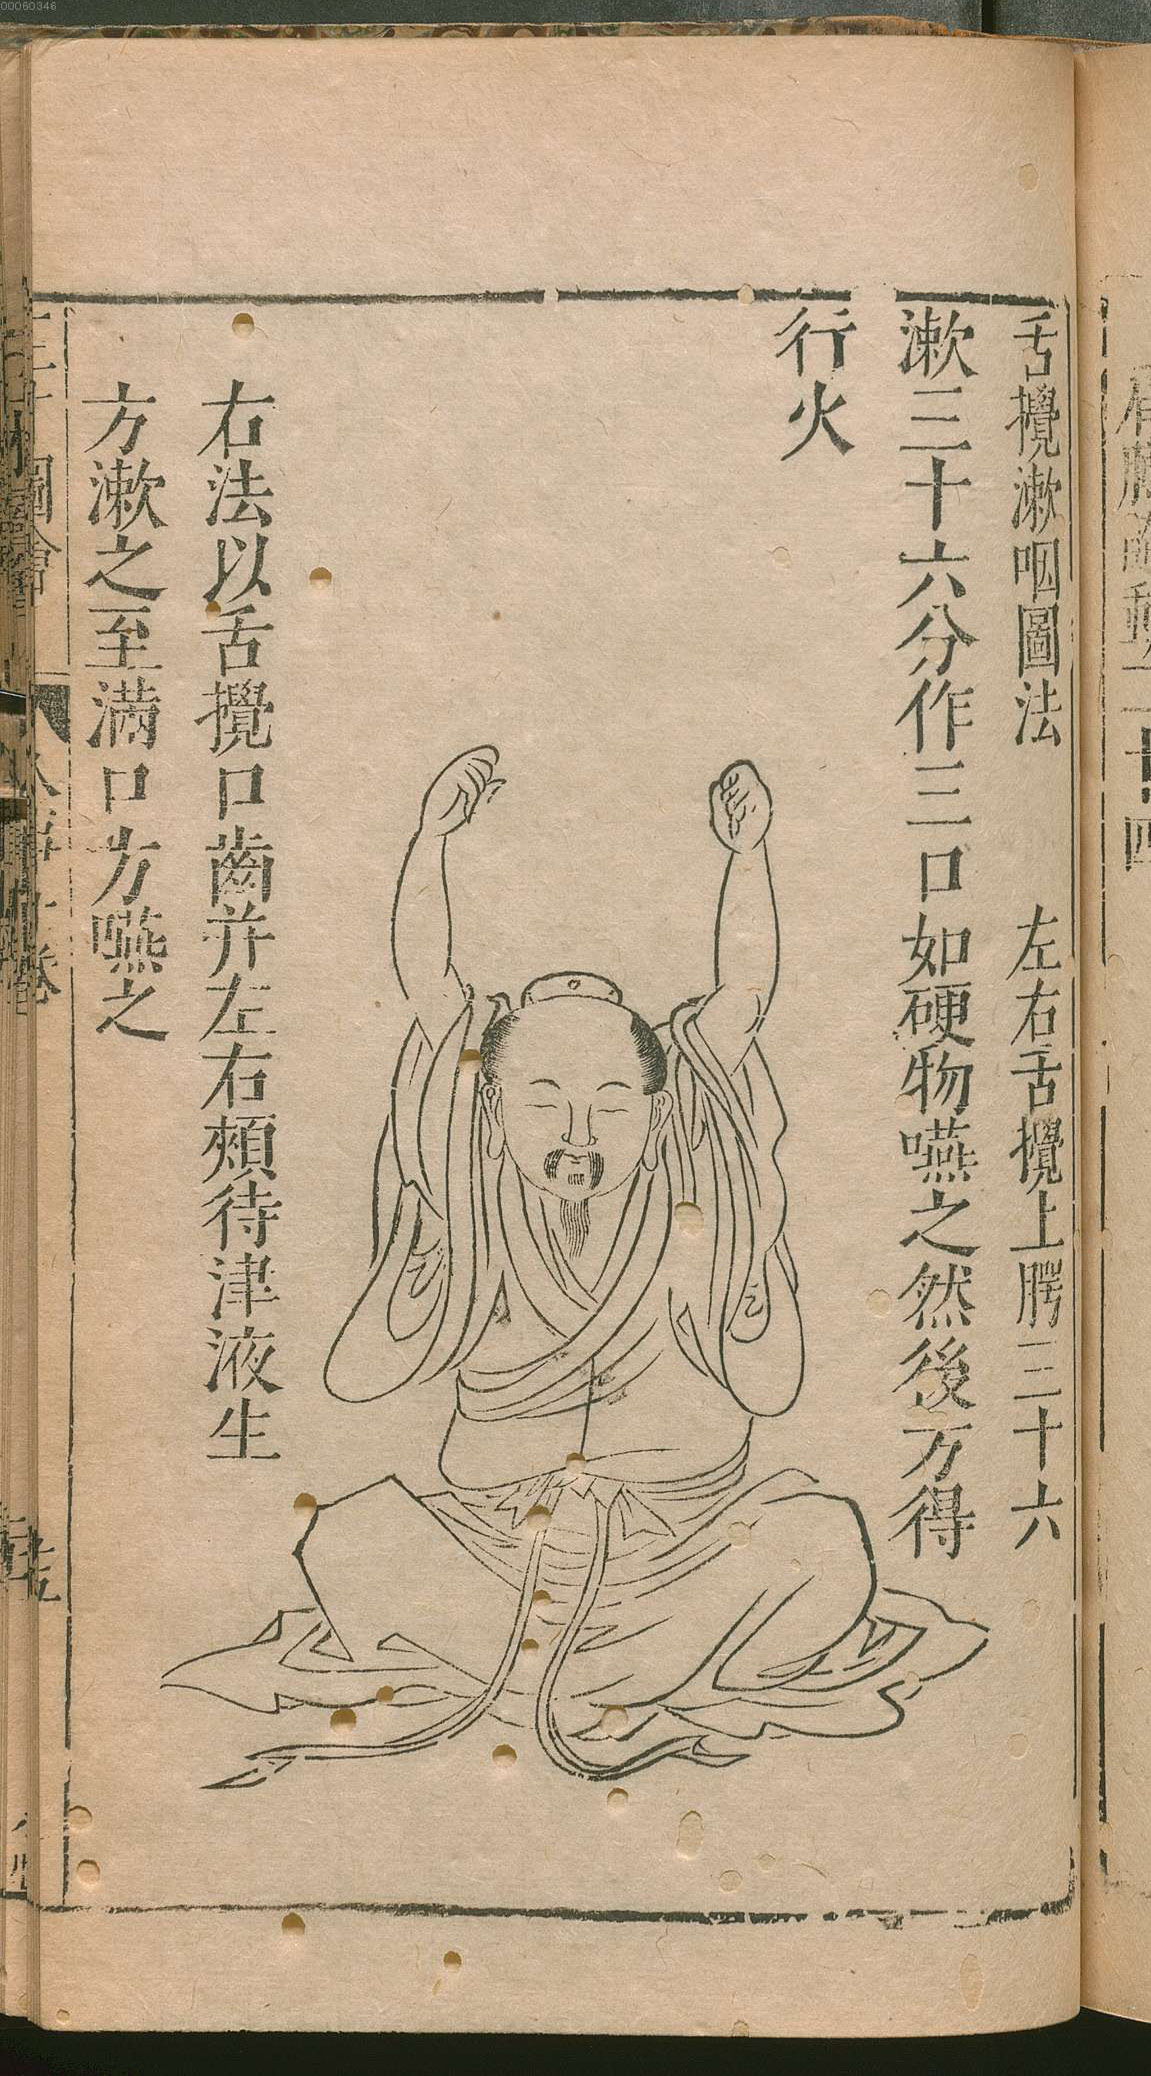 00060346
舌攪漱咽圖法 左右舌攪上腭三十六
漱三十六分作三口如硬物嚥之然後方得
行火
右法以舌攪口齒并左右頰待津液生
方漱之至滿口方嚥之
圖會